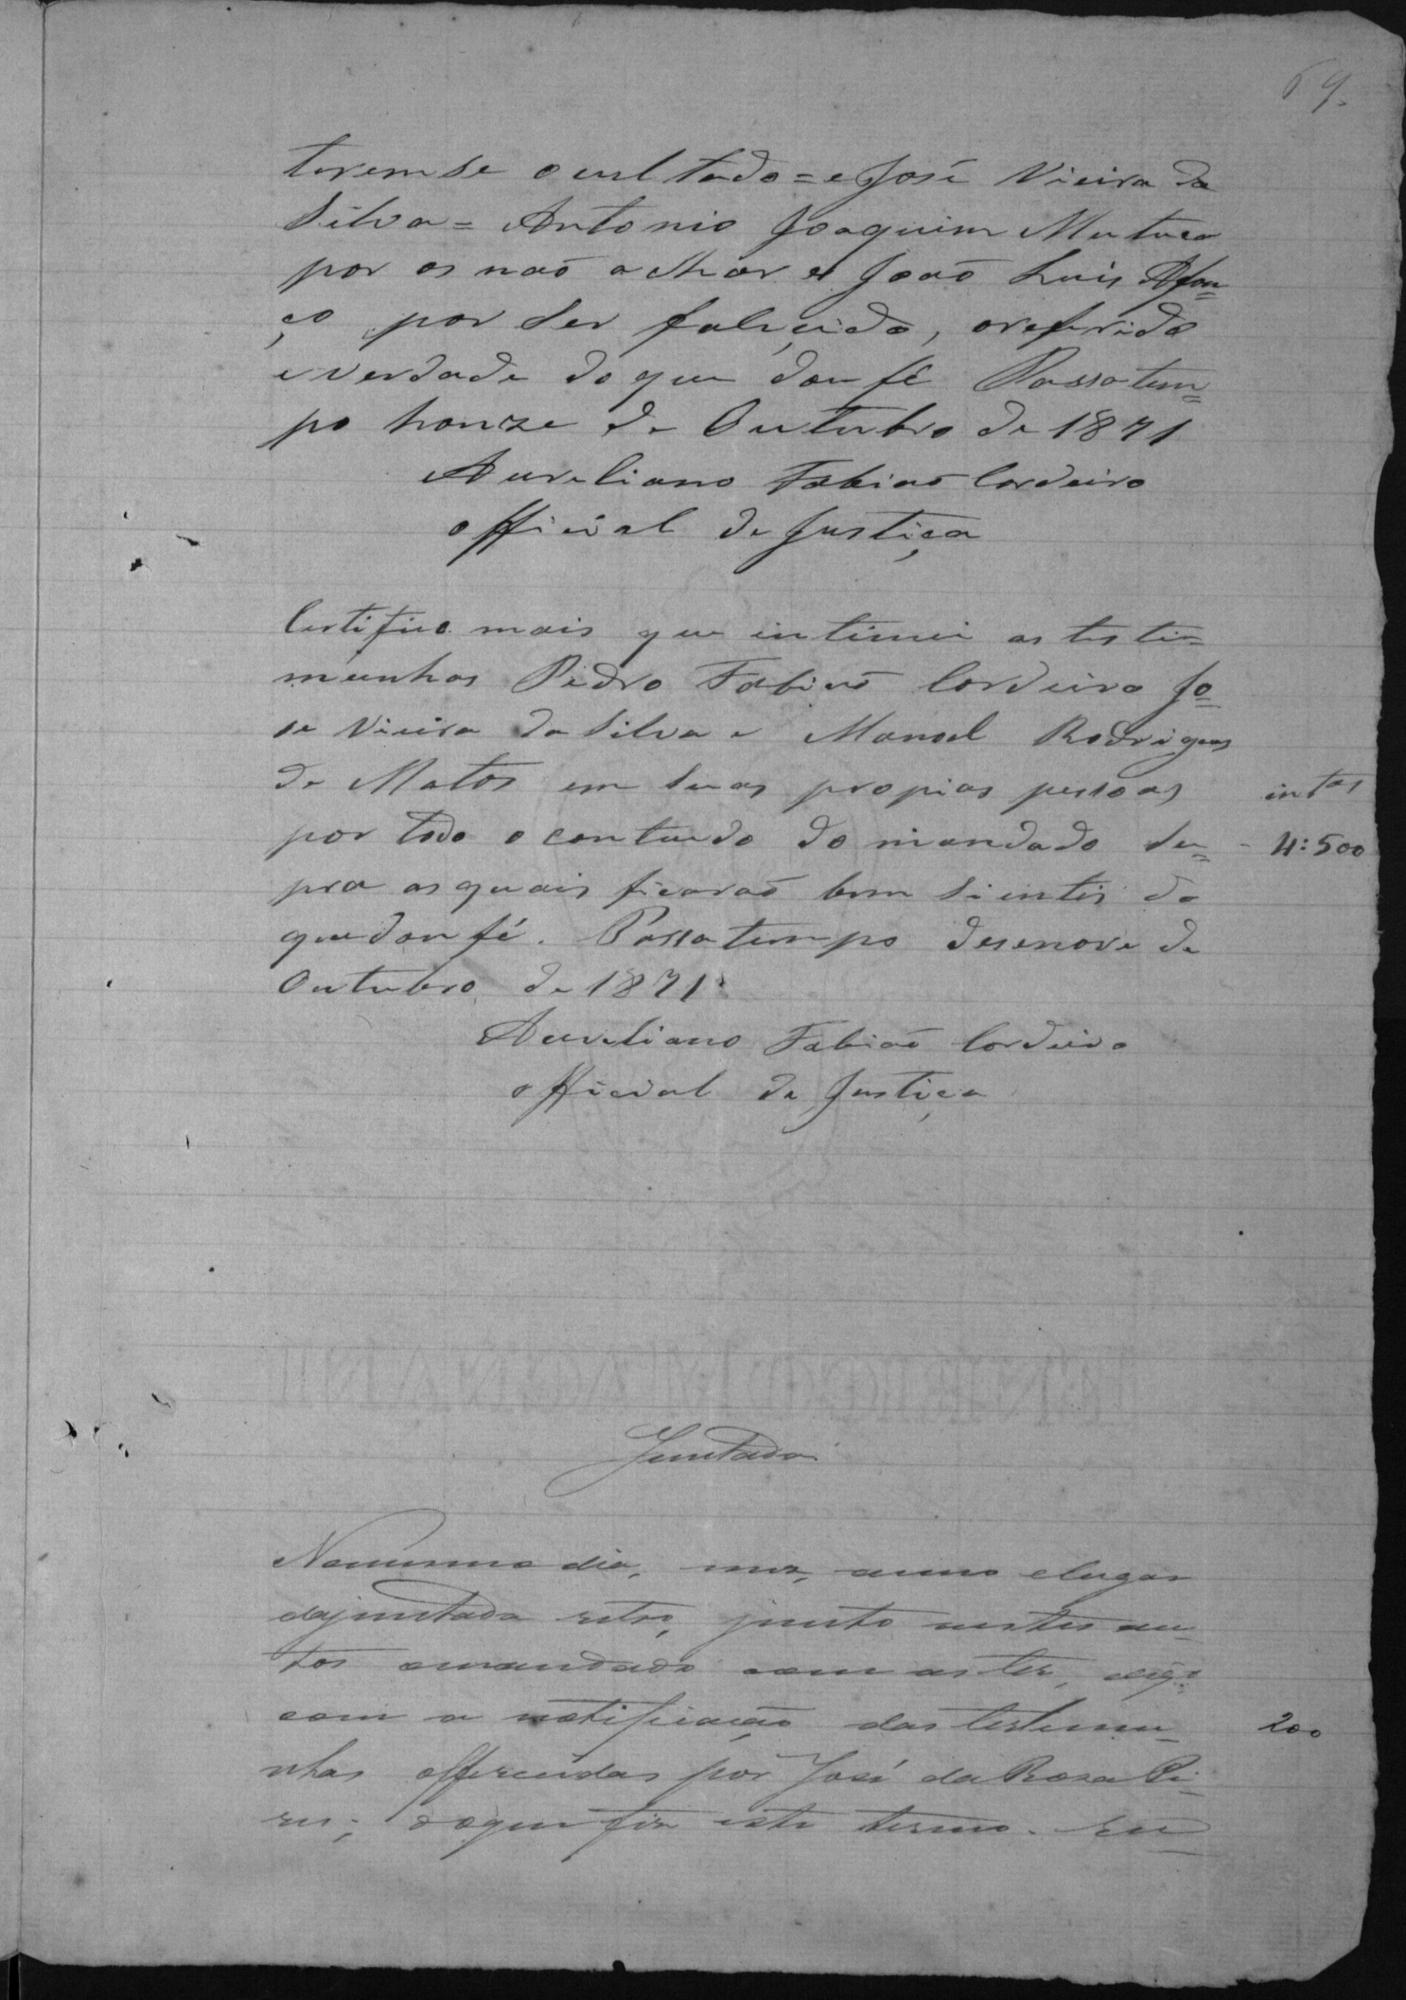 69.
teremse ocultado = e José Vieira da
Silva = Antonio Joaquim Mutuca
por os naõ achar e Joaõ Luis Afon=
ço por ser faleçido, oreferido
e verdade doque dou fé Passatem=
po honze de Outubro de 1871
Aureliano Fabiaõ Cordeiro
official de Justiça
Certifico mais que intimei as testi=
munhas Pedro Fabiaõ Cordeiro Jo=
se Vieira da Silva e Manoel Rodrigues
de Matos em suas propias pessoas
intas
por todo o contuedo do mandado su=
4:500
pra as quais ficaraõ bem sientes do
quedou fé. Passatempo desenove de
Outubro de 1871.
Aureliano Fabiaõ Cordeiro
official de Justiça
Juntada
Nomesmo dia, mez, anno elugar
dajuntada retro, junto nestes au-
tos omandado com as tes, digo
com a notificação das testemu-
200
nhas offerecidas por José da Rosa Pi-
res; doque fiz este termo. Eu